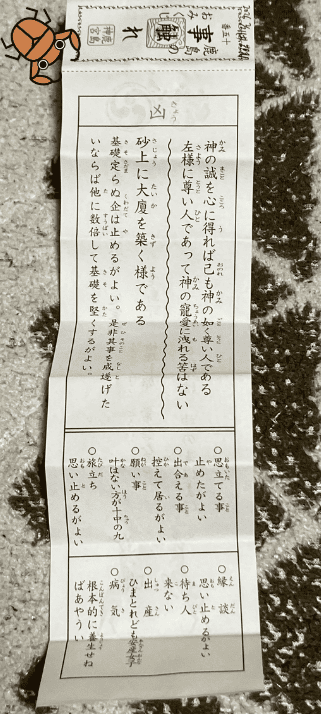 十五番
鹿島の
事触れ
おみくじ
鹿島
神宮
凶
神の誠を心に得れば己も神の如く尊い人である
左様に尊い人であって神の寵愛に洩れる筈はない
砂上に大廈を築く様である
基礎定らぬ企は止めるがよい。是非其事を成遂げた
いならば他に数倍して基礎を堅くするがよい。
○思立てる事
止めたがよい
○出合える事
控えて居るがよい
○願い事
叶はない方が十中の九
○旅立ち
思い止めるがよい
○縁談
思い止めるがよい
○待ち人
来ない
○出産
ひまとれども安産女子
○病気
根本的に養生せね
ばあやうい